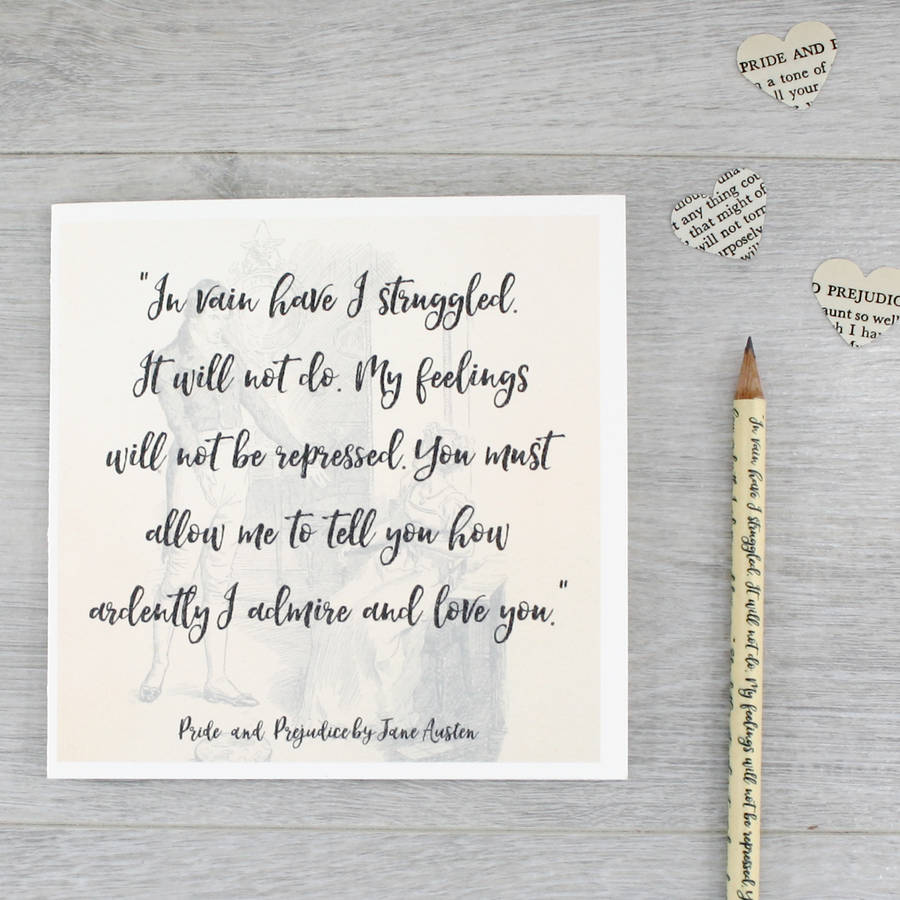 "In vain have I struggled.
It will not do. My feelings
will not be repressed. You must
allow me to tell you how
ardently I admire and love you."
Pride and Prejudice by Jane Austen
PRIDE AND P
a tone of
ll your
una
t any thing cou
that might of
will not torm
urposely
wil
D PREJUDIC
aunt so well
h I ha
In vain have I struggled. It will not do. My feelings will not be repressed. Y